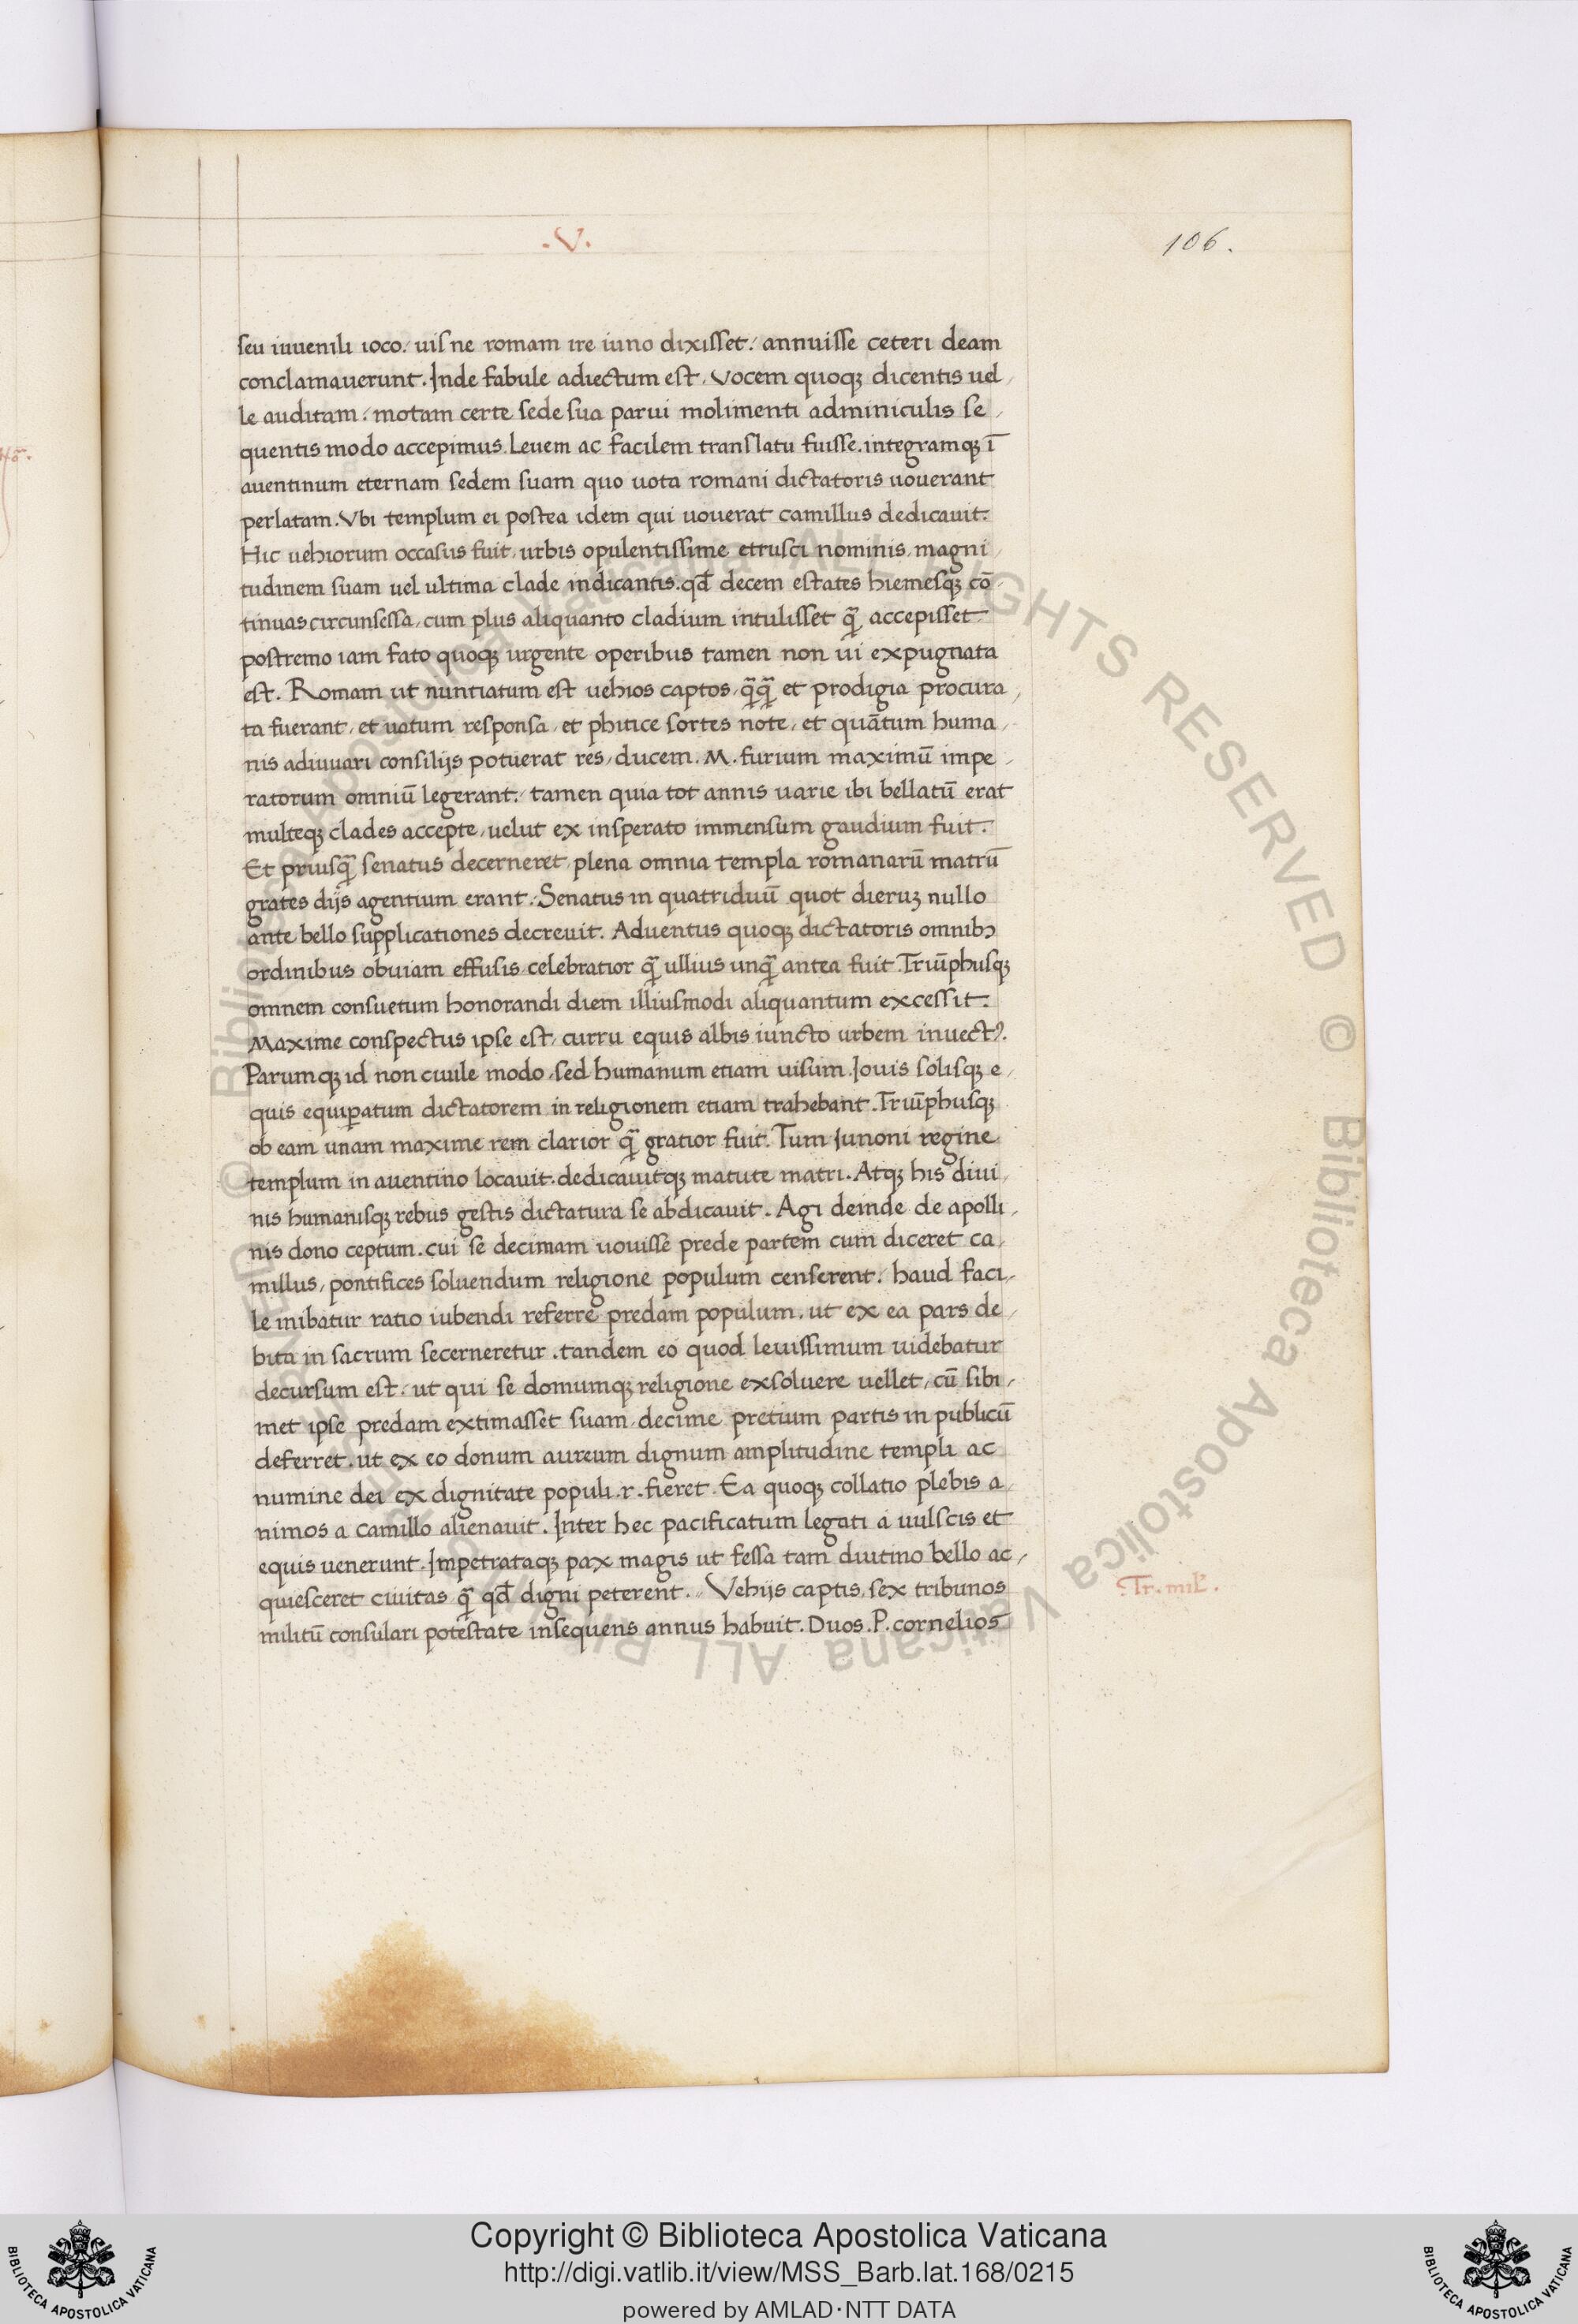 .V.
106.
seu iuuenili ioco. uis ne romam ire iuno dixisset. annuisse ceteri deam
conclamauerunt. Inde fabule adiectum est, vocem quoqȝ dicentis uel
le auditam. motam certe sede sua parui molimenti adminiculis se
quentis modo accepimus. Leuem ac facilem translatu fuisse. integramqȝ ī
auentinum eternam sedem suam quo uota romani dictatoris uouerant
perlatam. Vbi templum ei postea idem qui uouerat camillus dedicauit.
Hic uehiorum occasus fuit, urbis opulentissime etrusci nominis, magni
tudinem suam uel ultima clade indicantis. qđ decem estates hiemesqȝ cō
tinuas circunsessa, cum plus aliquanto cladium intulisset q̃ accepisset
postremo iam fato quoqȝ urgente operibus tamen non ui expugnata
est. Romam ut nuntiatum est uehios captos, q̃q̃ et prodigia procura
ta fuerant, et uatum responsa, et phitice sortes note, et quātum huma
nis adiuuari consilijs potuerat res, ducem. M. furium maximū impe
ratorum omniū legerant. tamen quia tot annis uarie ibi bellatū erat
multeqȝ clades accepte, uelut ex insperato immensum gaudium fuit.
Et priusq̃ senatus decerneret plena omnia templa romanarū matrū
grates dijs agentium erant. Senatus in quatriduū quot dieruȝ nullo
ante bello supplicationes decreuit. Aduentus quoqȝ dictatoris omnibꝫ
ordinibus obuiam effusis celebratior q̃ ullius unq̃ antea fuit. Triūphusqȝ
omnem consuetum honorandi diem illiusmodi aliquantum excessit.
Maxime conspectus ipse est, curru equis albis iuncto urbem inuectꝰ.
Parumqȝ id non ciuile modo, sed humanum etiam uisum. Iouis solisqȝ e
quis equiꝑatum dictatorem in religionem etiam trahebant. Triūphusqȝ
ob eam unam maxime rem clarior q̃ gratior fuit. Tum Iunoni regine
templum in auentino locauit. dedicauitqȝ matute matri. Atqȝ his diui
nis humanisqȝ rebus gestis dictatura se abdicauit. Agi deinde de apolli
nis dono ceptum. cui se decimam uouisse prede partem cum diceret ca
millus, pontifices soluendum religione populum censerent. haud faci
le inibatur ratio iubendi referre predam populum. ut ex ea pars de
bita in sacrum secerneretur. tandem eo quod leuissimum uidebatur
decursum est. ut qui se domumqȝ religione exsoluere uellet, cū sibi
met ipse predam extimasset suam, decime pretium partis in publicū
deferret. ut ex eo donum aureum dignum amplitudine templi ac
numine dei ex dignitate populi .r. fieret. Ea quoqȝ collatio plebis a
nimos a camillo alienauit. Inter hec pacificatum legati a uulscis et
equis uenerunt. Impetrataqȝ pax magis ut fessa tam diutino bello ac
quiesceret ciuitas q̃ qđ digni peterent. Vehijs captis, sex tribunos
militū consulari potestate insequens annus habuit. Duos. P. cornelios
Tr. mil.
Copyright © Biblioteca Apostolica Vaticana
http://digi.vatlib.it/view/MSS_Barb.lat.168/0215
powered by AMLAD·NTT DATA